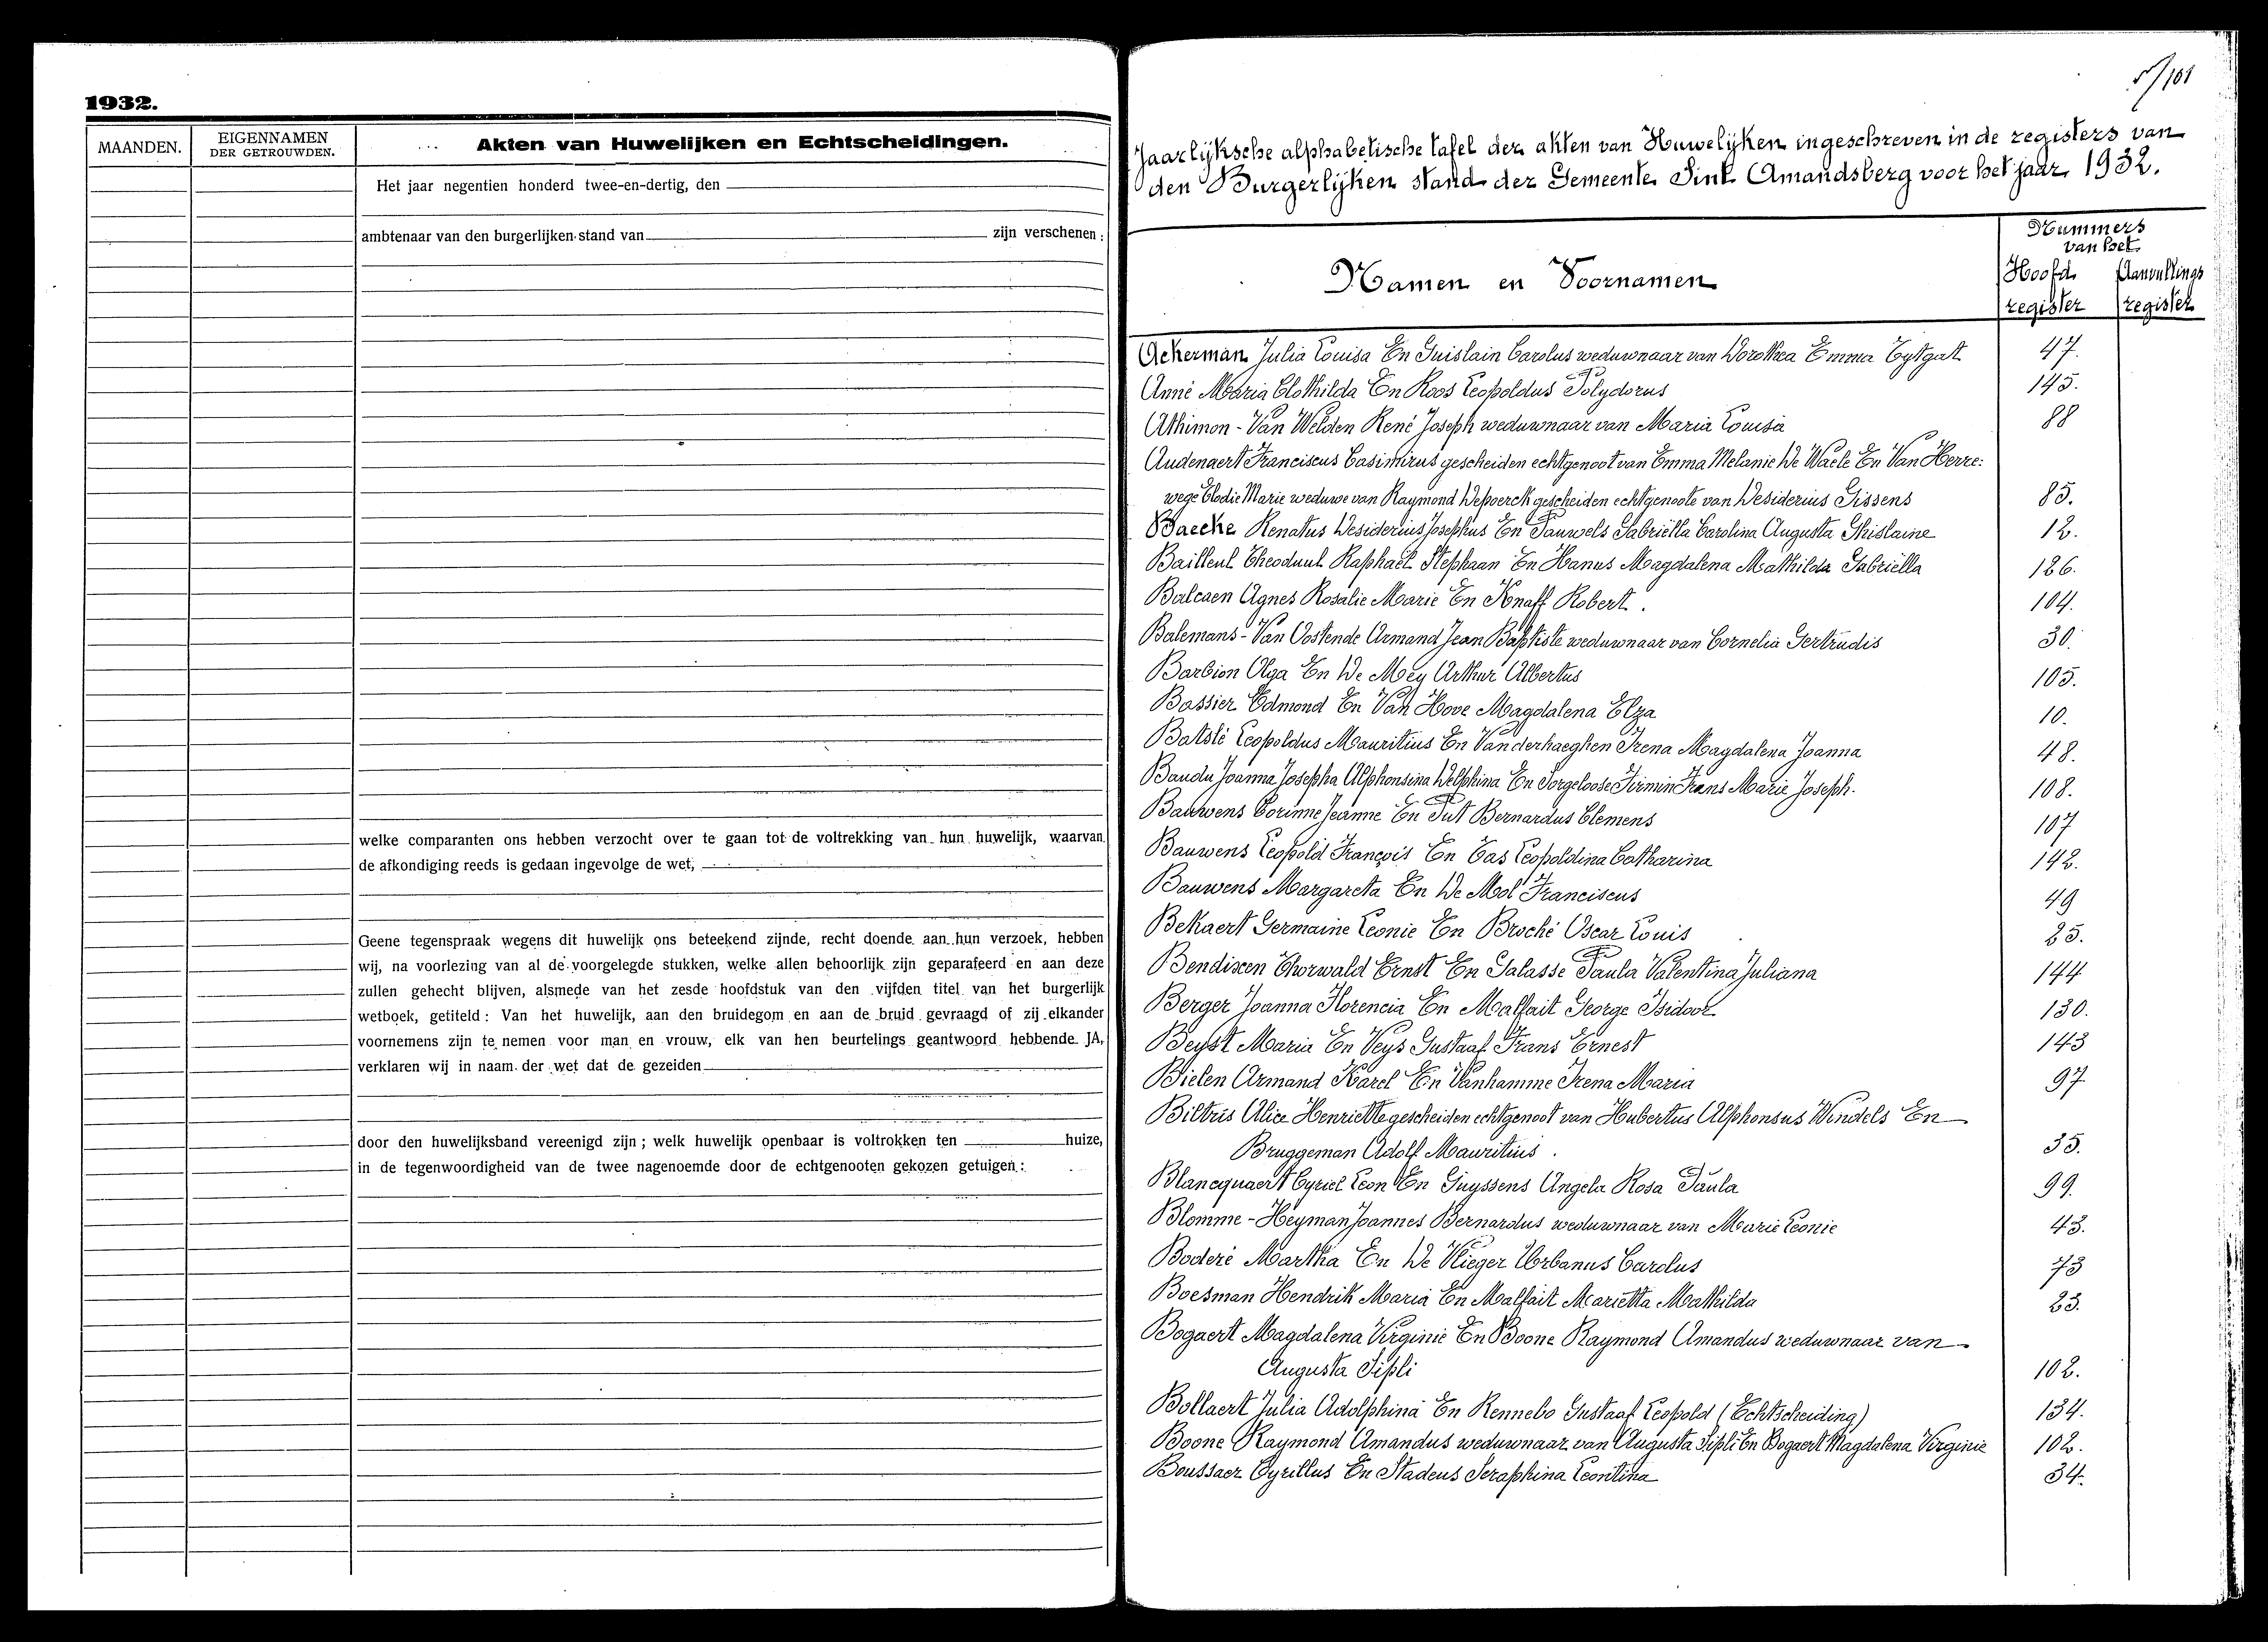 1932.
MAANDEN.
EIGENNAMEN
DER GETROUWDEN.
Akten van Huwelijken en Echtscheidingen.
Het jaar negentien honderd twee-en-dertig, den
ambtenaar van den burgerlijken stand van zijn verschenen:
welke comparanten ons hebben verzocht over te gaan tot de voltrekking van hun huwelijk, waarvan
de afkondiging reeds is gedaan ingevolge de wet,
Geene tegenspraak wegens dit huwelijk ons beteekend zijnde, recht doende aan hun verzoek, hebben
wij, na voorlezing van al de voorgelegde stukken, welke allen behoorlijk zijn geparafeerd en aan deze
zullen gehecht blijven, alsmede van het zesde hoofdstuk van den vijfden titel van het burgerlijk
wetboek, getiteld: Van het huwelijk, aan den bruidegom en aan de bruid gevraagd of zij elkander
voornemens zijn te nemen voor man en vrouw, elk van hen beurtelings geantwoord hebbende JA,
verklaren wij in naam der wet dat de gezeiden
door den huwelijksband vereenigd zijn; welk huwelijk openbaar is voltrokken ten huize,
in de tegenwoordigheid van de twee nagenoemde door de echtgenooten gekozen getuigen:
Jaarlijksche alphabetische tafel der akten van Huwelijken ingeschreven in de registers van
den Burgerlijken stand der Gemeente Sint Amandsberg voor het jaar 1932.
Namen en Voornamen
Nummers
van het
Hoofd Aanvullings
register register
Ackerman Julia Louisa En Guislain Carolus weduwnaar van Dorothea Emma Tytgat 47.
Anné Maria Clothilda En Roos Leopoldus Polydorus 145.
Athimon - Van Welden René Joseph weduwnaar van Maria Louisa 88
Audenaert Franciscus Casimirus gescheiden echtgenoot van Emma Melanie De Waele En Van Herre:
wege Elodie Marie weduwe van Raymond Depoerck gescheiden echtgenoote van Desiderius Gissens 85.
Baecke Renatus Desiderius Josephus En Pauwels Gabriëlla Carolina Augusta Ghislaine 12.
Bailleul Theoduul Raphaël Stephaan En Hanus Magdalena Mathilda Gabriëlla 126.
Balcaen Agnes Rosalie Marie En Knaff Robert. 104.
Balemans - Van Oostende Armand Jean Baptiste weduwnaar van Cornelia Gertrudis 30.
Barbion Olga En De Mey Arthur Albertus 105.
Bassier Edmond En Van Hove Magdalena Elza 10.
Batslé Leopoldus Mauritius En Vanderhaeghen Irena Magdalena Joanna 48.
Baudu Joanna Josepha Alphonsina Delphina En Sorgeloose Firmin Frans Marie Joseph. 108.
Bauwens Corinne Jeanne En Put Bernardus Clemens 107
Bauwens Leopold François En Cas Leopoldina Catharina 142.
Bauwens Margareta En De Mol Franciscus 49
Bekaert Germaine Leonie En Broché Oscar Louis 25.
Bendixen Thorwald Ernst En Galasse Paula Valentina Juliana 144
Berger Joanna Florencia En Malfait George Isidoor 130.
Beyst Maria En Veys Gustaaf Frans Ernest 143
Bielen Armand Karel En Vanhamme Irena Maria 97
Biltris Alice Henriette gescheiden echtgenoot van Hubertus Alphonsus Windels En
Bruggeman Adolf Mauritius. 35.
Blancquaert Cyriel Leon En Guyssens Angela Rosa Paula 99.
Blomme - Heyman Joannes Bernardus weduwnaar van Marie Leonie 43.
Boderé Martha En De Vlieger Urbanus Carolus 73
Boesman Hendrik Maria En Malfait Marietta Mathilda 23.
Bogaert Magdalena Virginie En Boone Raymond Amandus weduwnaar van
Augusta Sipli 102.
Bollaert Julia Adolphina En Rennebo Gustaaf Leopold (Echtscheiding) 134.
Boone Raymond Amandus weduwnaar van Augusta Sipli En Bogaert Magdalena Virginie 102.
Boussaer Cyrillus En Stadeus Seraphina Leontina 34.